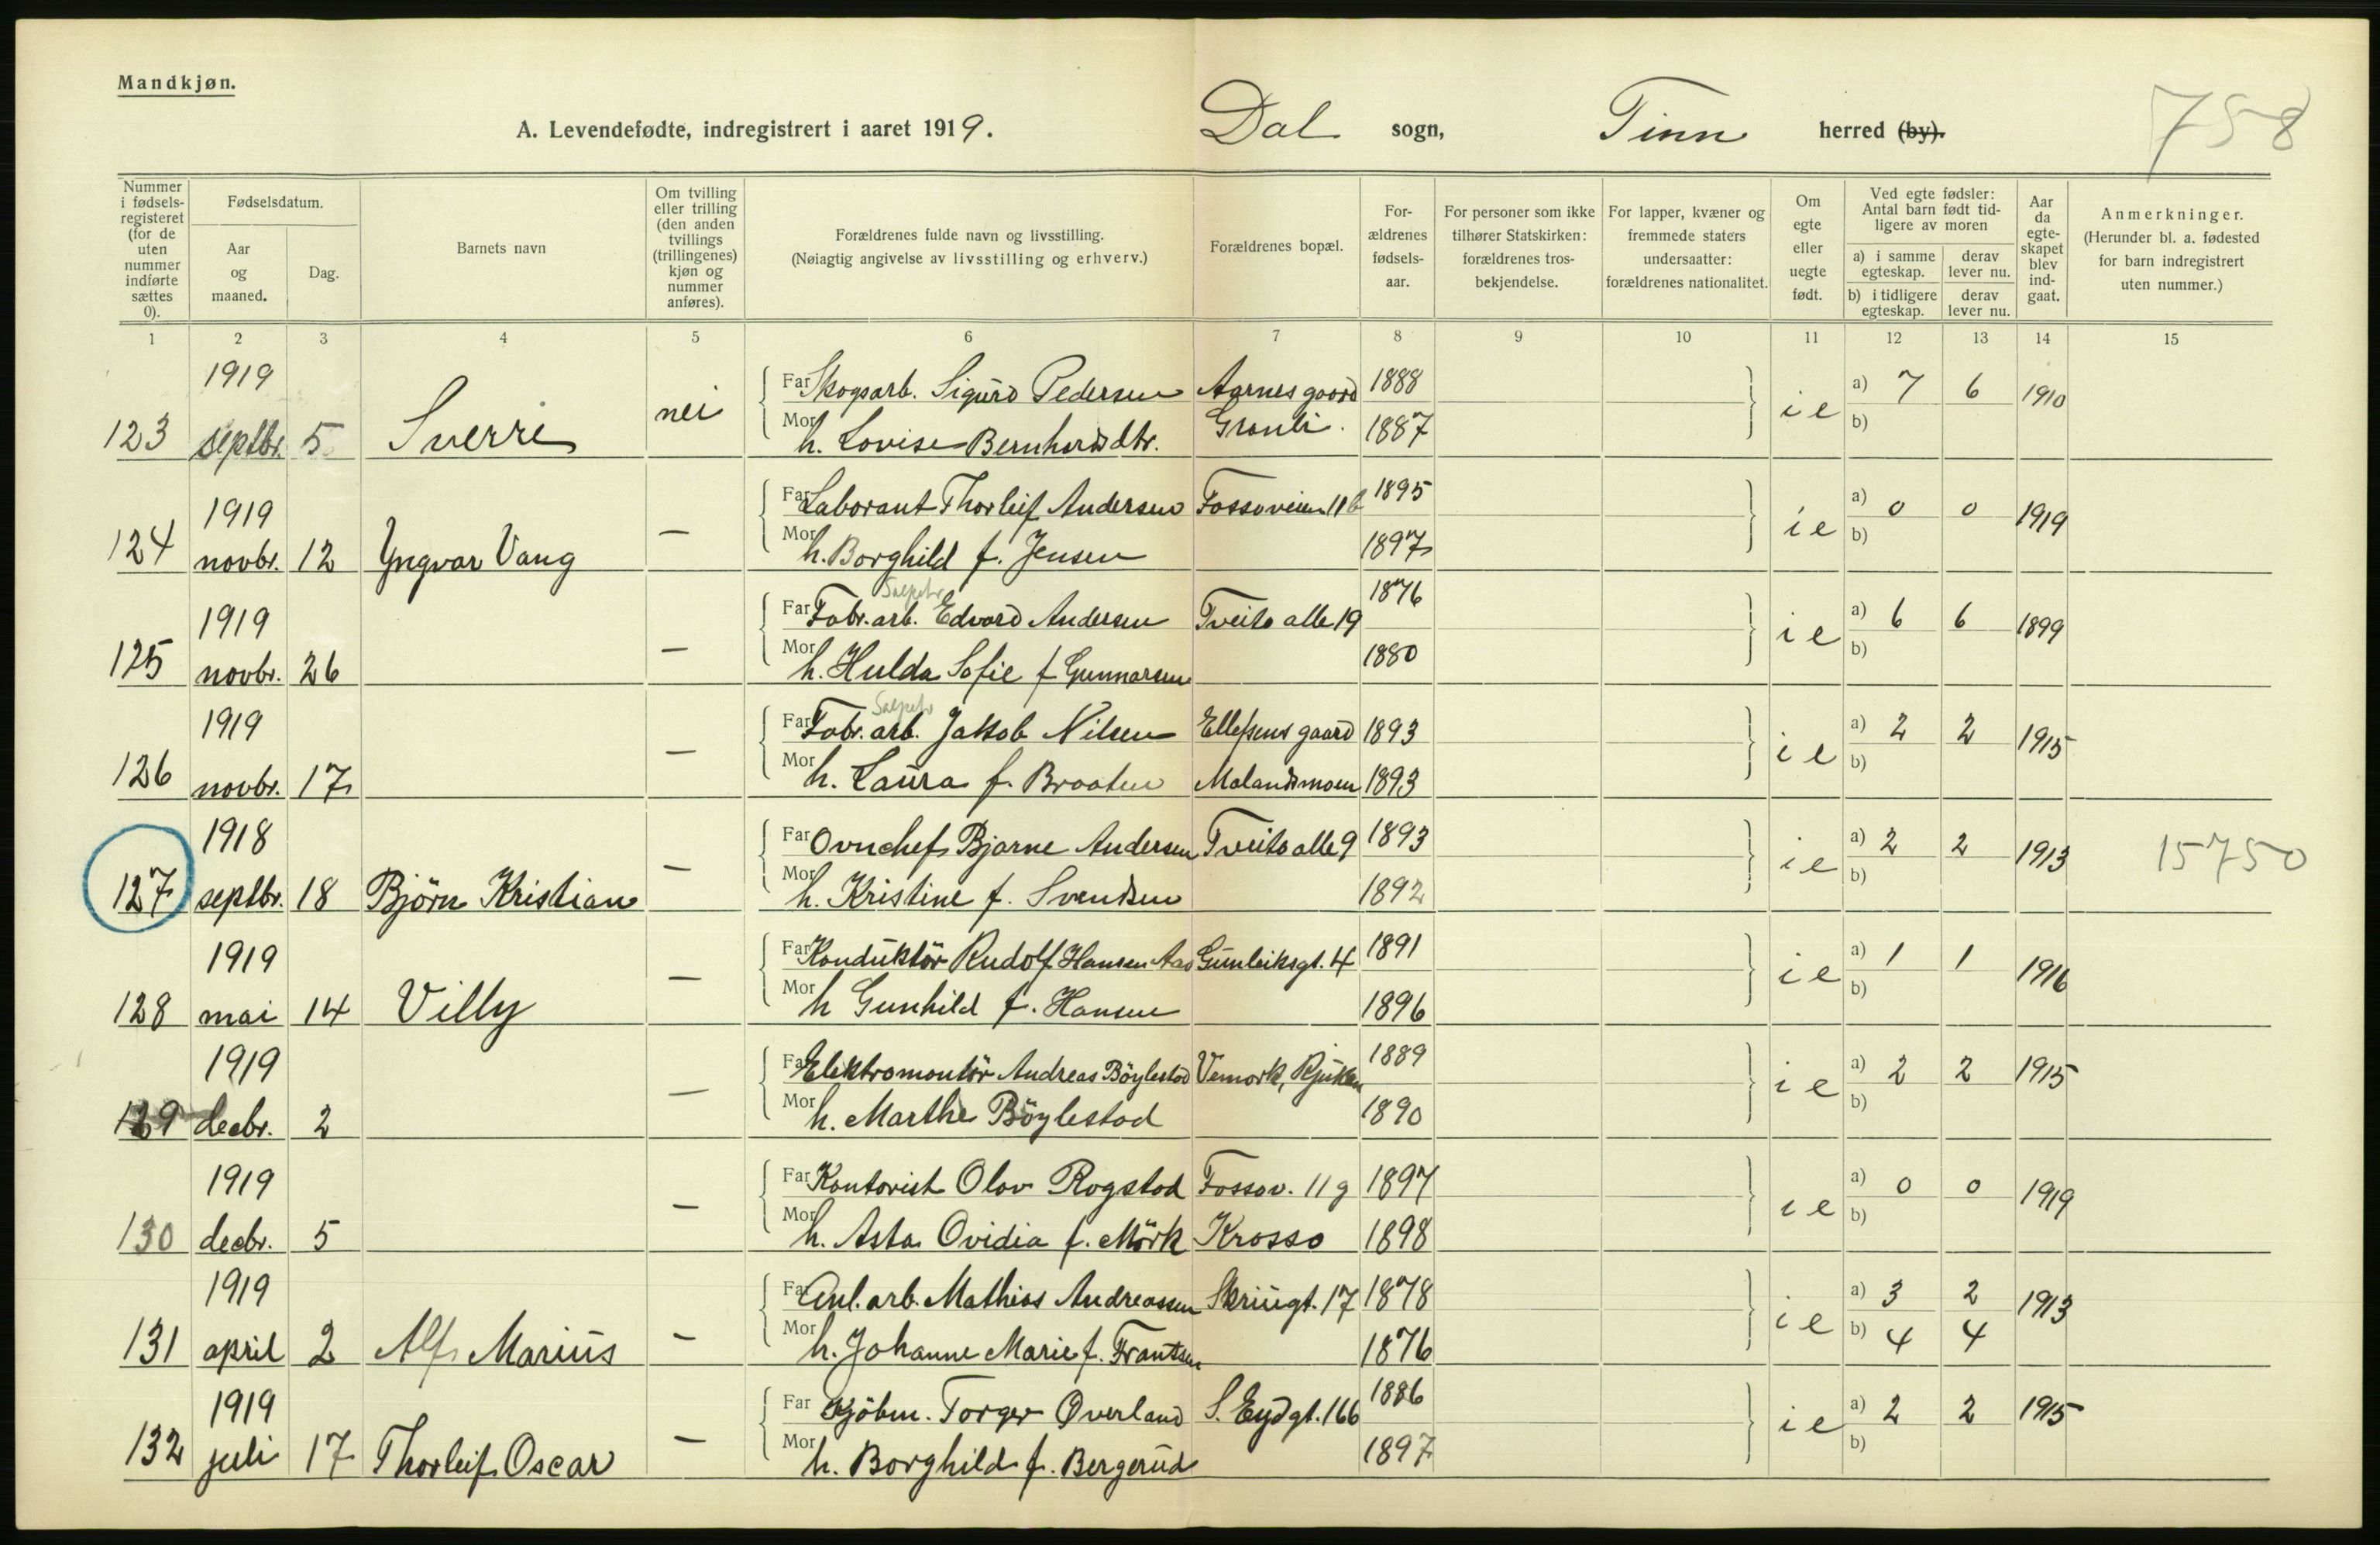 Mandkjøn.
A. Levendefødte, indregistrert i aaret 1919. Dal sogn, Tinn herred (by). 758
Nummer i fødsels-registeret (for de uten nummer indførte sættes 0).
Fødselsdatum.
Aar og maaned.
Dag.
Barnets navn
Om tvilling eller trilling (den anden tvillings (trillingenes) kjøn og nummer anføres).
Forældrenes fulde navn og livsstilling.
(Nøiagtig angivelse av livsstilling og erhverv.)
Forældrenes bopæl.
For-ældrenes fødsels-aar.
For personer som ikke tilhører Statskirken: forældrenes tros-bekjendelse.
For lapper, kvæner og fremmede staters undersaatter: forældrenes nationalitet.
Om egte eller uegte født.
Ved egte fødsler: Antal barn født tid-ligere av moren
a) i samme egteskap. derav lever nu.
b) i tidligere egteskap. derav lever nu.
Aar da egte-skapet blev ind-gaat.
Anmerkninger.
(Herunder bl. a. fødested for barn indregistrert uten nummer.)
1 2 3 4 5 6 7 8 9 10 11 12 13 14 15
1919 Far Skogsarb. Sigurd Pedersen Aarnes gaard 1888 a) 7 6 1910
123 septbr. 5 Sverre nei Mor h. Lovise Bernhardsdtr. Granli. 1887 i e b)
1919 Far Laborant Thorleif Andersen Fossoveien 11b 1895 a) 0 0 1919
124 novbr. 12 Yngvar Vang — Mor h. Borghild f. Jensen 1897 i e b)
Salpetr
1919 Far Fabr. arb. Edvard Andersen Tveito alle 19 1876 a) 6 6 1899
125 novbr. 26 — Mor h. Hulda Sofie f Gunnarsen 1880 i e b)
Salpetr
1919 Far Fabr. arb. Jakob Nilsen Ellefsens gaard 1893 a) 2 2 1915
126 novbr. 17 — Mor h. Laura f. Braaten Malandsmoen 1893 i e b)
1918 Far Ovnchef Bjarne Andersen Tveito alle 9 1893 a) 2 2 1913 15750
127 septbr. 18 Björn Kristian — Mor h. Kristine f. Svendsen 1892 i e b)
1919 Far Konduktör Rudolf Hansen Aas Gunleiksgt. 4 1891 a) 1 1 1916
128 mai 14 Villy — Mor h Gunhild f. Hansen 1896 i e b)
1919 Far Elektromontör Andreas Böylestad Vemork, Rjukan 1889 a) 2 2 1915
129 decbr. 2 — Mor h. Marthe Böylestad 1890 i e b)
1919 Far Kontorist Olav Rogstad Fossov. 11g 1897 a) 0 0 1919
130 decbr. 5 — Mor h. Asta Ovidia f. Mörk Krosso 1898 i e b)
1919 Far Anl. arb. Mathias Andreassen Skriugt. 17 1878 a) 3 2 1913
131 april 2 Alf Marius — Mor h. Johanne Marie f. Frantsen 1876 i e b) 4 4
1919 Far Kjöbm. Torger Överland S. Eydgt. 166 1886 a) 2 2 1915
132 juli 17 Thorleif Oscar — Mor h. Borghild f. Bergerud 1897 i e b)